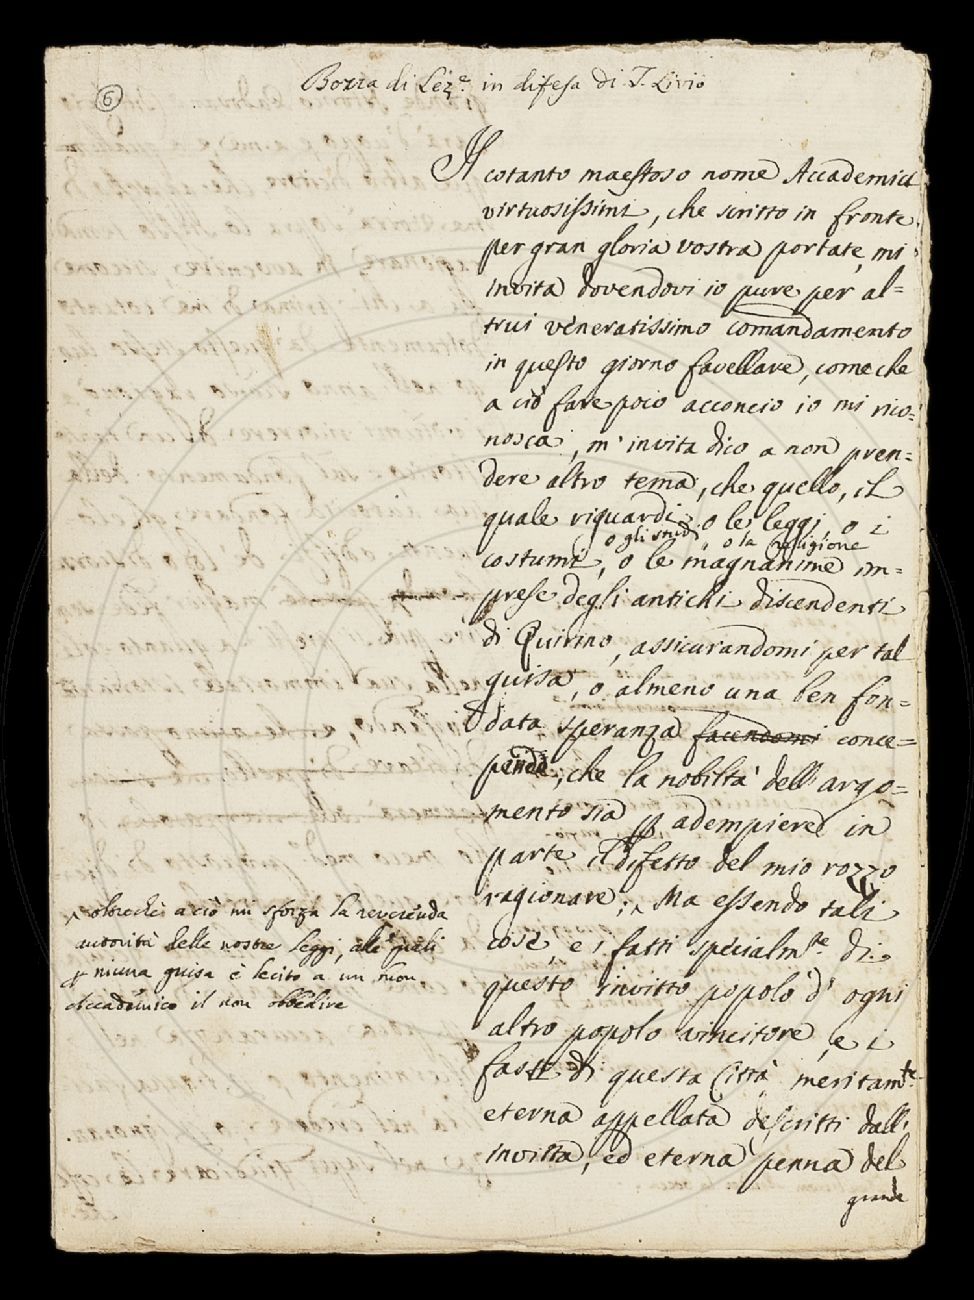 6
Bozza di Lez.e in difesa di T. Livio
Il cotanto maestoso nome Accademici
virtuosissimi, che scritto in fronte
per gran gloria vostra portate, mi
invita dovendovi io pure per al=
trui veneratissimo comandamento
in questo giorno favellare, come che
a ciò fare poco acconcio io mi rico=
nosca, m'invita dico a non pren=
dere altro tema, che quello, il
quale riguardi o le leggi, o i
o gli studi, o la religione
costumi, o le magnanime im=
prese degli antichi discendenti
di Quirino, assicurandomi per tal
guisa, o almeno una ben fon=
data speranza facendomi conce=
pendo, che la nobiltà dell'argo=
mento sia p adempiere in
parte il difetto del mio rozzo
ragionare; Ma essendo tali
cose, e i fatti specialm.te di
questo invitto popolo d'ogni
altro popolo vincitore, e i
fasti di questa Città meritam.te
eterna appellata descritti dall'
invitta, ed eterna penna del
grande
oltreché a ciò mi sforza la reverenda
autorità delle nostre leggi, alle quali
p niuna guisa è lecito a un buon
Accademico il non obbedire